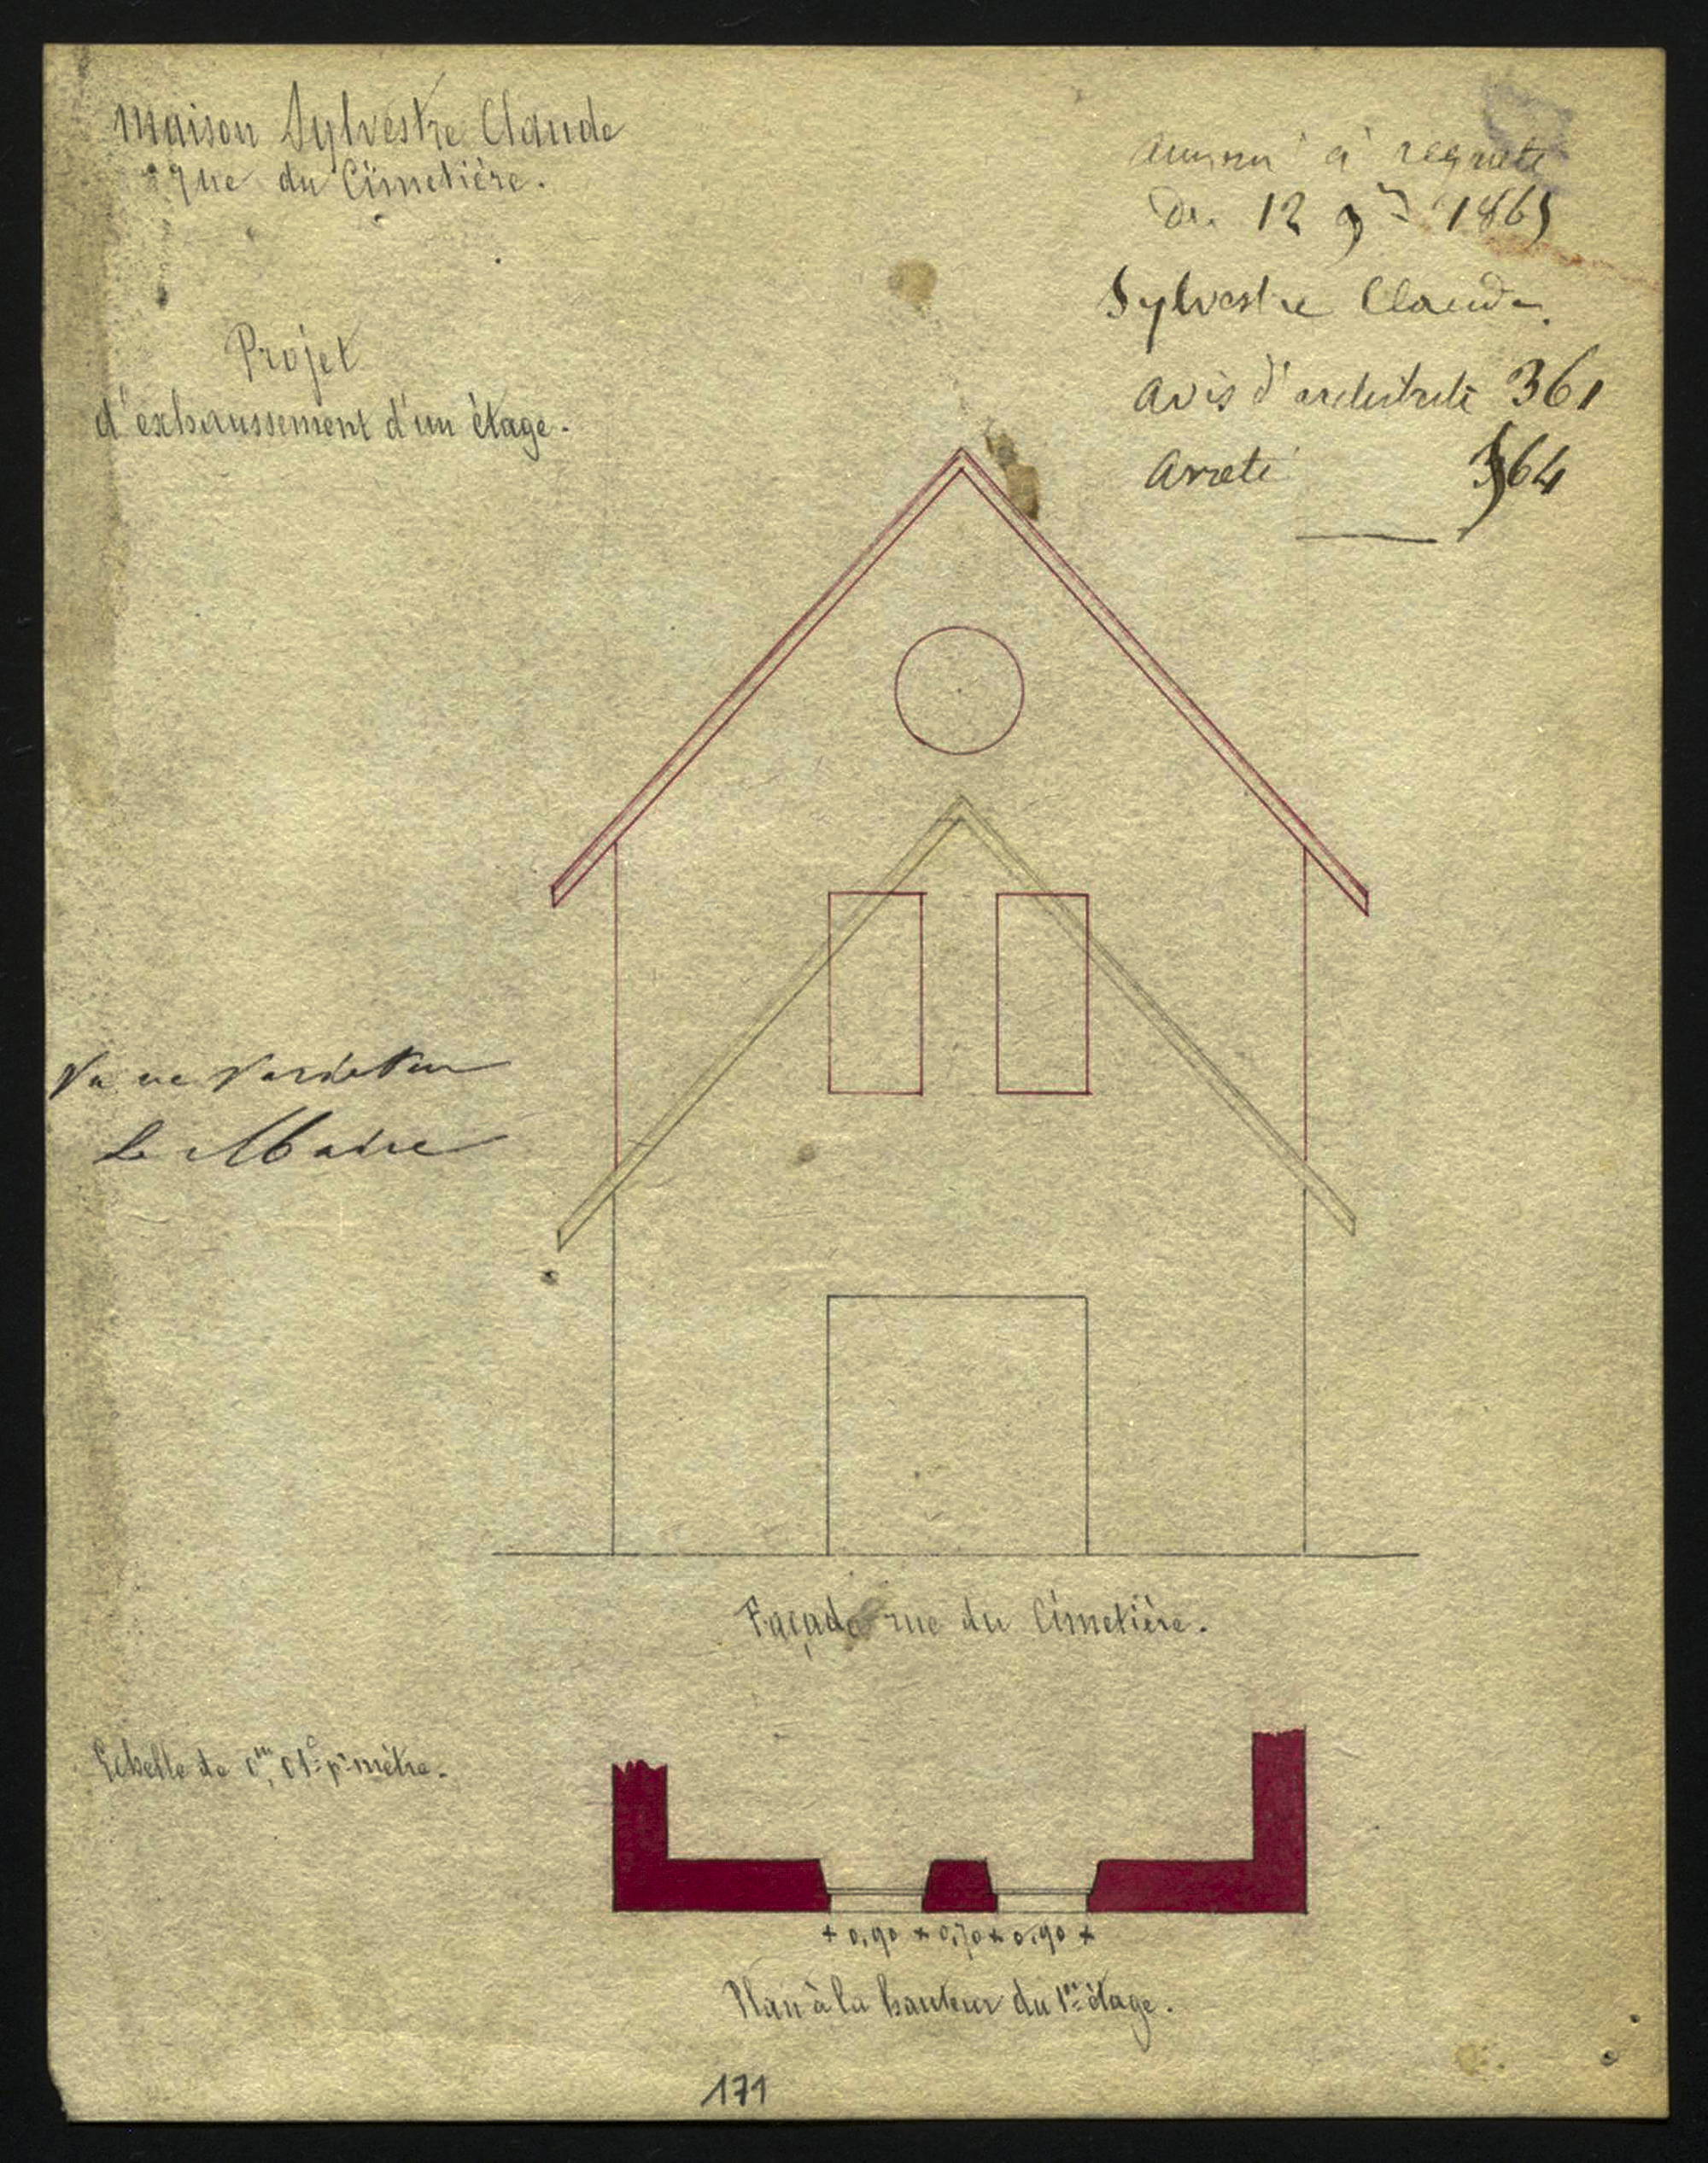 Maison Sylvestre Claude
rue du Cimetière.
Projet
d'exhaussement d'un étage.
à requete
du 12 9re 1865
Sylvestre Claude
avis d'architecte 361
Arreté 364
Vu ne varietur
Le Maire
Façade rue du Cimetière.
Echelle de 0m,01c pr mètre.
+ 0,90 × 0,70 × 0,90 ×
Plan à la hauteur du 1er étage.
171